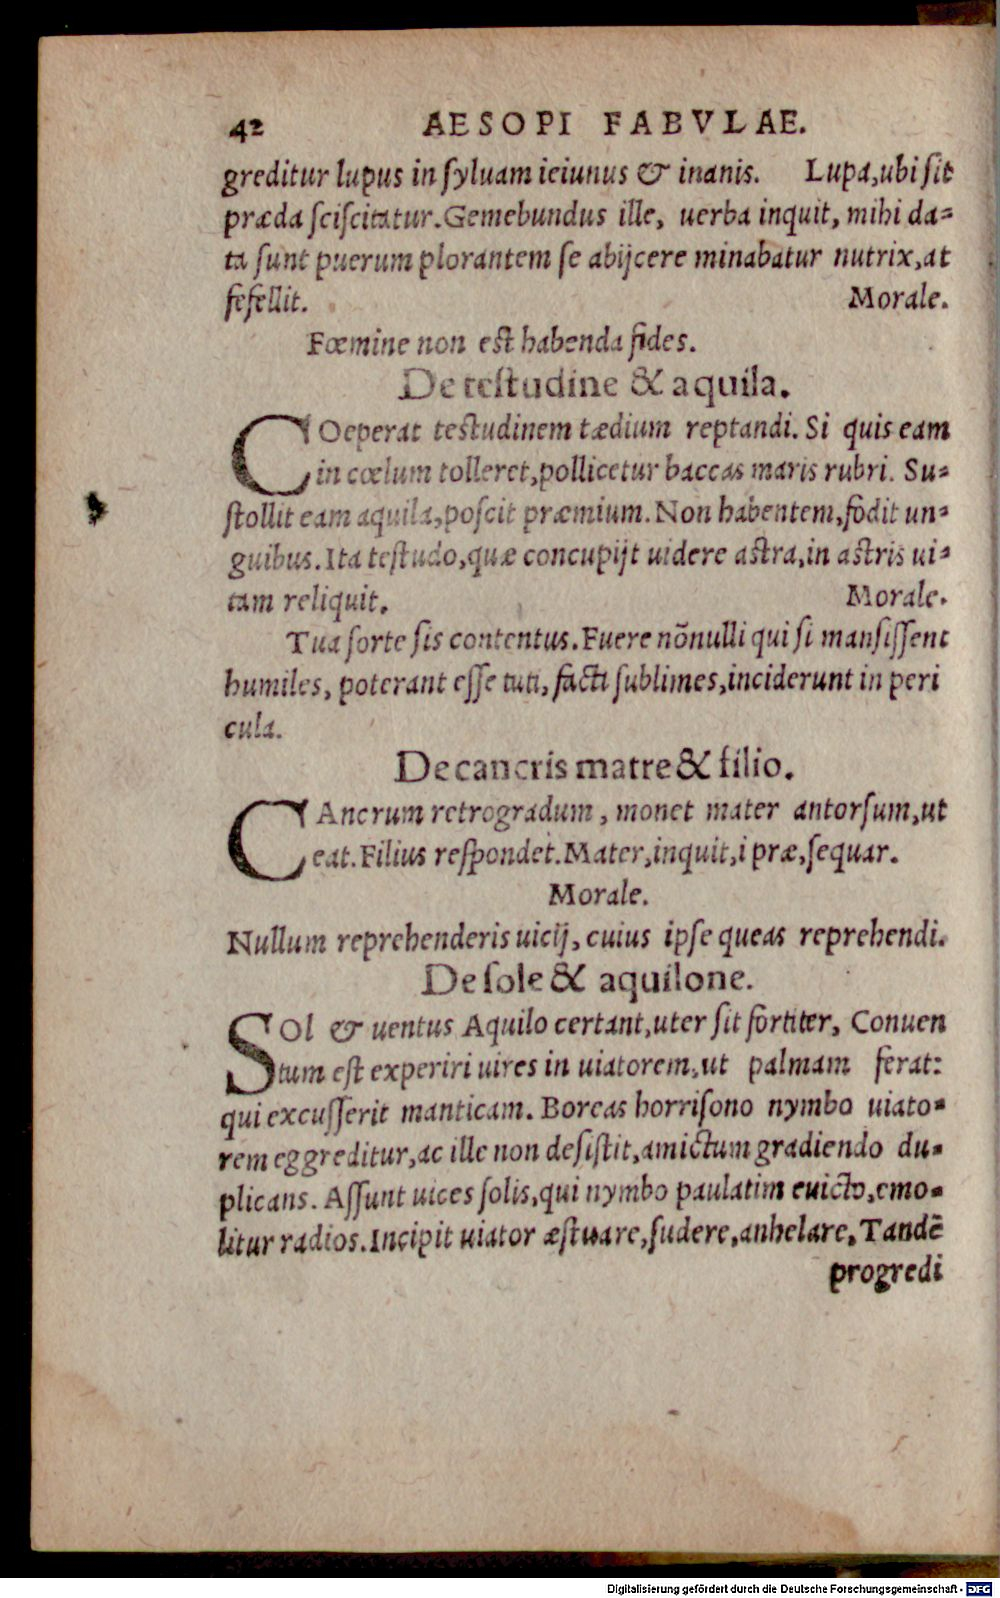 42 AESOPI FABVLAE.
greditur lupus in ſyluam ieiunus & inanis. Lupa, ubi ſit
præda ſciſcitatur. Gemebundus ille, uerba inquit, mihi da-
ta ſunt puerum plorantem ſe abijcere minabatur nutrix, at
fefellit. Morale.
Fœmine non eſt habenda fides.
De teſtudine & aquila.
COeperat teſtudinem tædium reptandi. Si quis eam
in cœlum tolleret, pollicetur baccas maris rubri. Su-
ſtollit eam aquila, poſcit præmium. Non habentem, fodit un-
guibus. Ita teſtudo, quæ concupijt uidere aſtra, in aſtris ui-
tam reliquit. Morale.
Tua ſorte ſis contentus. Fuere nõnulli qui ſi manſiſſent
humiles, poterant eſſe tuti, facti ſublimes, inciderunt in peri
cula.
De cancris matre & filio.
CAncrum retrogradum, monet mater antorſum, ut
eat. Filius reſpondet. Mater, inquit, i præ, ſequar.
Morale.
Nullum reprehenderis uicij, cuius ipſe queas reprehendi.
De ſole & aquilone.
SOl & uentus Aquilo certant, uter ſit fortiter, Conuen
tum eſt experiri uires in uiatorem, ut palmam ferat:
qui excuſſerit manticam. Boreas horriſono nymbo uiato-
rem eggreditur, ac ille non deſiſtit, amictum gradiendo du-
plicans. Aſſunt uices ſolis, qui nymbo paulatim euicto, emo-
litur radios. Incipit uiator æſtuare, ſudere, anhelare, Tandē
progredi
Digitalisierung gefördert durch die Deutsche Forschungsgemeinschaft - DFG